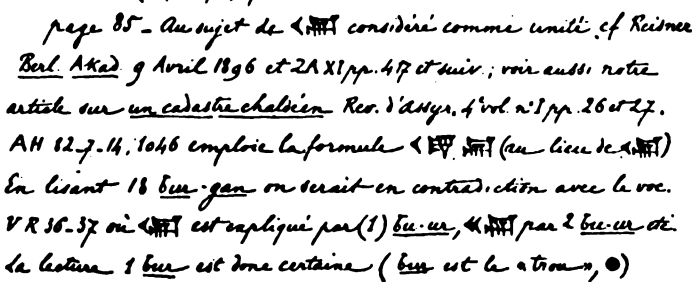 page 85 - Au sujet de 𒌋𒃷 considéré comme unité cf Reisner
Berl. Akad. 9 Avril 1896 et ZA XI pp. 417 et suiv.; voir aussi notre
article sur un cadastre chaldéen Rev. d'Assyr. 4e vol. n° I pp. 26 et 27.
AH 82-7-14, 1046 emploie la formule (au lieu de 𒌋𒃷)
En lisant 18 bur-gan on serait en contradiction avec le voc.
V R 36-37 où 𒌋𒃷 est expliqué par (1) bu-ur, 𒌋𒌋𒃷 par 2 bu-ur etc
La lecture 1 bur est donc certaine ( bur est le « trou », ●)